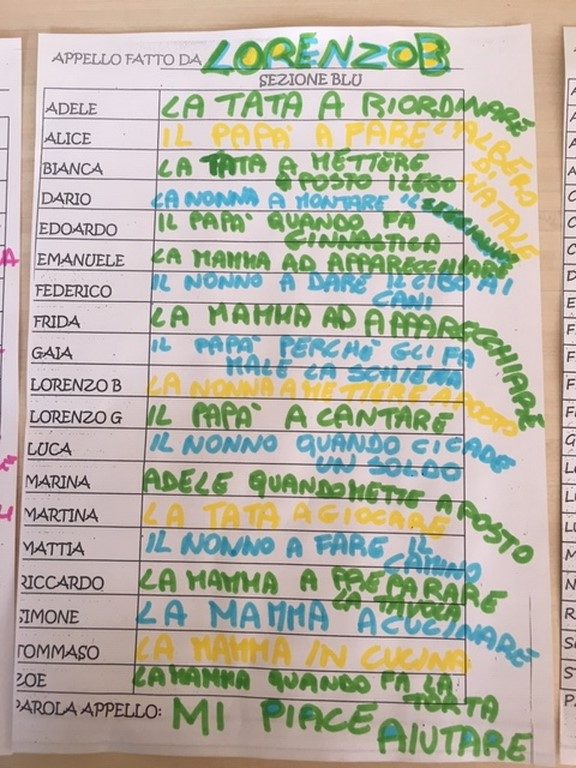 APPELLO FATTO DA LORENZO B
SEZIONE BLU
ADELE LA TATA A RIORDINARE
ALICE IL PAPA' A FARE L'ALBERO DI NATALE
BIANCA LA TATA A METTERE
A POSTO I LEGO
DARIO LA NONNA A MONTARE IL
EDOARDO IL PAPA' QUANDO FA
GINNASTICA
EMANUELE LA MAMMA AD APPARECCHIARE
FEDERICO IL NONNO A DARE IL CIBO AI
CANI
FRIDA LA MAMMA AD APPARECCHIARE
GAIA IL PAPA' PERCHÉ GLI FA
MALE LA SCHIENA
LORENZO B LA NONNA A METTERE A POSTO
LORENZO G IL PAPA' A CANTARE
LUCA IL NONNO QUANDO CI CADE
UN SOLDO
MARINA ADELE QUANDO METTE A POSTO
MARTINA LA TATA A GIOCARE
MATTIA IL NONNO A FARE IL
CAMINO
RICCARDO LA MAMMA A PREPARARE
LA TAVOLA
SIMONE LA MAMMA A CUCINARE
TOMMASO LA MAMMA IN CUCINA
ZOE LA MAMMA QUANDO FA LA
TORTA
PAROLA APPELLO: MI PIACE AIUTARE